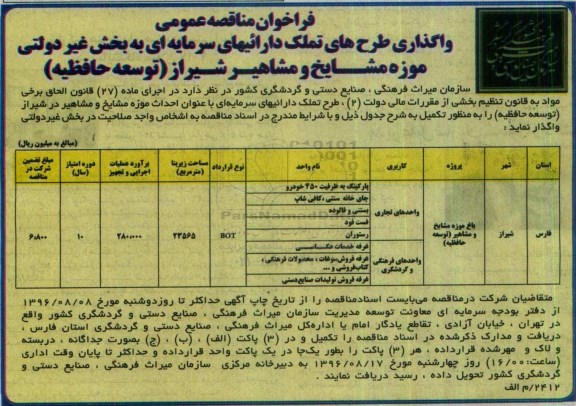 فراخوان مناقصه عمومی
واگذاری طرح های تملک دارائیهای سرمایه ای به بخش غیر دولتی
موزه مشایخ و مشاهیر شیراز (توسعه حافظیه)
سازمان میراث فرهنگی ، صنایع دستی و گردشگری کشور در نظر دارد در اجرای ماده (۲۷) قانون الحاق برخی
مواد به قانون تنظیم بخشی از مقررات مالی دولت (۲) ، طرح تملک دارائیهای سرمایه‌ای با عنوان احداث موزه مشایخ و مشاهیر در شیراز
(توسعه حافظیه) را به منظور تکمیل به شرح جدول ذیل و با شرایط مندرج در اسناد مناقصه به اشخاص واجد صلاحیت در بخش غیردولتی
واگذار نماید :
(مبالغ به میلیون ریال)
استان شهر پروژه کاربری نام واحد نوع قرارداد مساحت زیربنا (مترمربع) برآورده عملیات اجرایی و تجهیز دوره امتیاز (سال) مبلغ تضمین شرکت در مناقصه
فارس شیراز باغ موزه مشایخ و مشاهیر (توسعه حافظیه)
واحدهای تجاری
پارکینگ به ظرفیت ۲۵۰ خودرو
چای خانه سنتی ،کافی شاپ
بستنی و فالوده
فست فود
رستوران
واحدهای فرهنگی و گردشگری
غرفه خدمات عکاسی
غرفه فروش‌سوغات ، محصولات فرهنگی ، کتاب‌فروشی و ...
غرفه فروش تولیدات صنایع‌دستی
BOT ۲۳۵۶۵ ۲۸۰،۰۰۰ ۱۰ ۶،۸۰۰
متقاضیان شرکت درمناقصه می‌بایست اسنادمناقصه را از تاریخ چاپ آگهی حداکثر تا روزدوشنبه مورخ ۱۳۹۶/۰۸/۰۸
از دفتر بودجه سرمایه ای معاونت توسعه مدیریت سازمان میراث فرهنگی ، صنایع دستی و گردشگری کشور واقع
در تهران ، خیابان آزادی ، تقاطع یادگار امام یا اداره‌کل میراث فرهنگی ، صنایع دستی و گردشگری استان فارس ،
دریافت و مدارک ذکرشده در اسناد مناقصه را تکمیل و در (۳) پاکت (الف) ، (ب) ، (ج) بصورت جداگانه ، دربسته
و لاک و مهرشده قرارداده ، هر (۳) پاکت را بطور یک‌جا در یک پاکت واحد قرارداده و حداکثر تا پایان وقت اداری
(ساعت:۱۶/۰۰) روز چهارشنبه مورخ ۱۳۹۶/۰۸/۱۷ به دبیرخانه مرکزی سازمان میراث فرهنگی ، صنایع دستی و
گردشگری کشور تحویل داده ، رسید دریافت نمایند .
۲۴۱۲/م الف